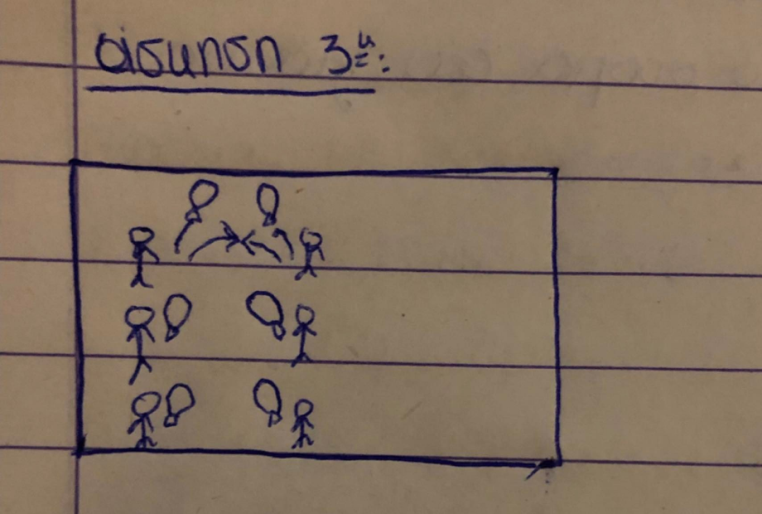 άσκηση 3η: